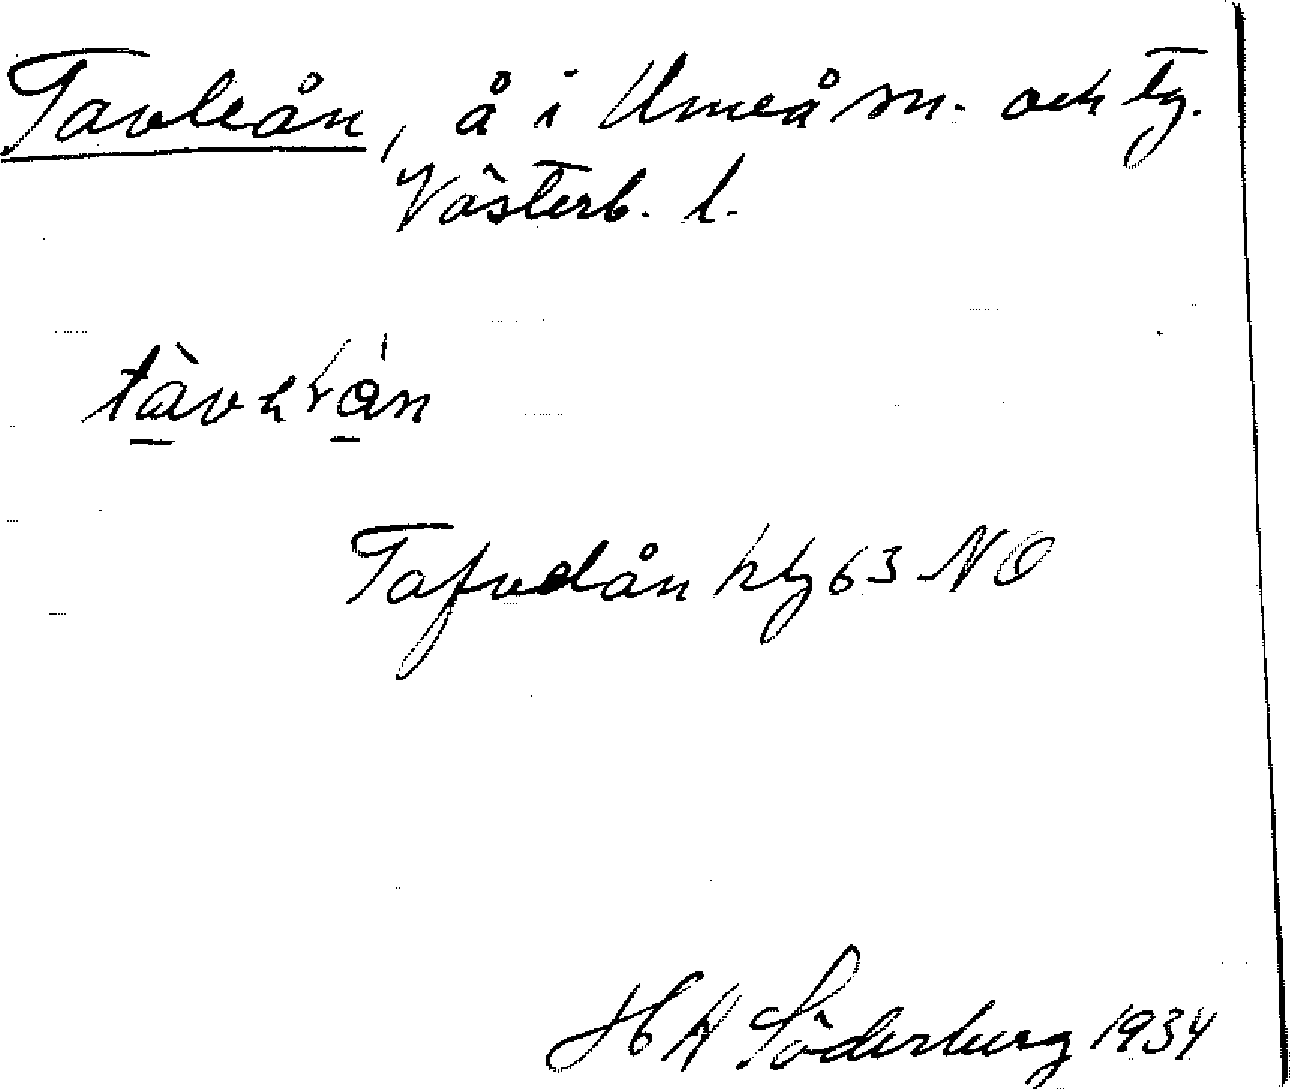 Tavleån, å i Umeå sn. och tg.
Västerb. l.
Tafvelån ktg 63 NO
H Söderberg 1934